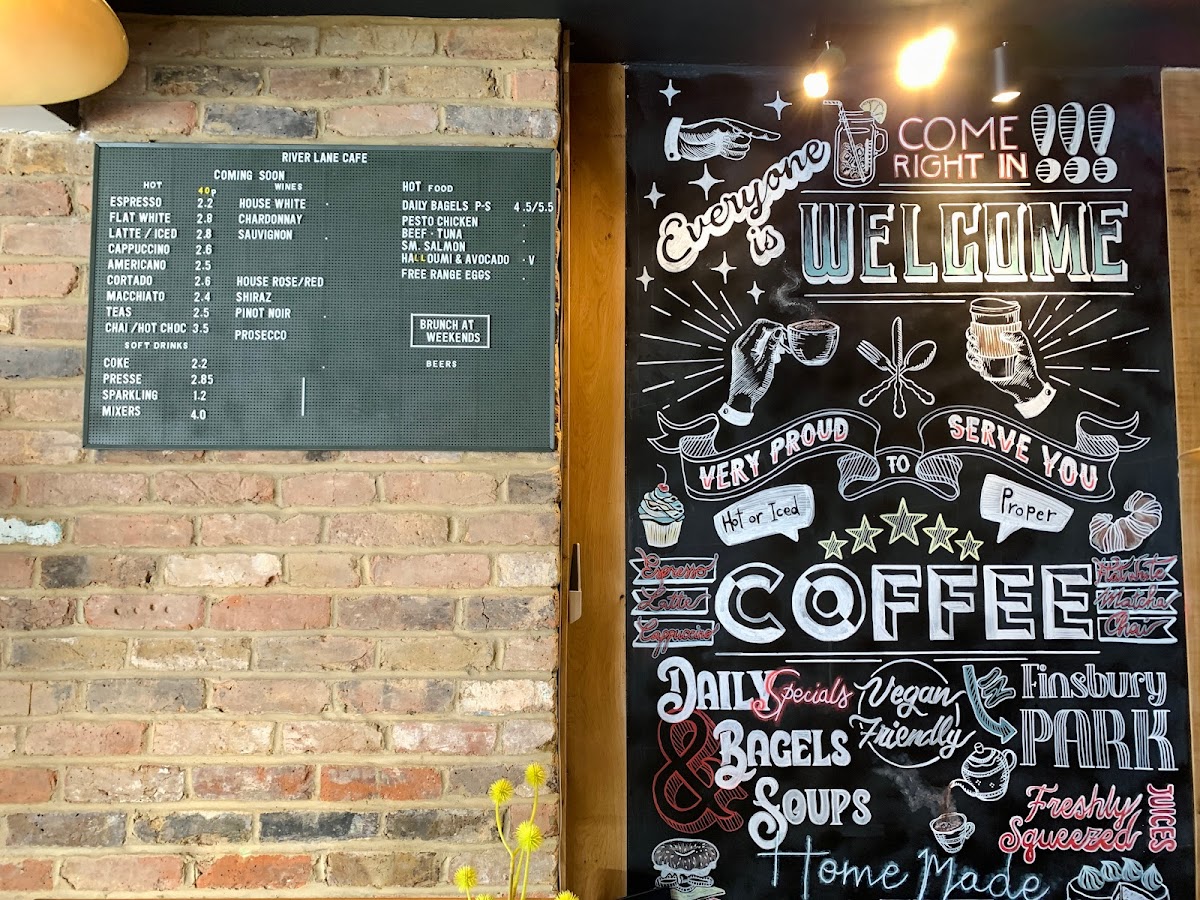 RIVER LANE CAFE
COMING SOON
HOT
40p
ESPRESSO 2.2
FLAT WHITE 2.8
LATTE / ICED 2.8
CAPPUCCINO 2.6
AMERICANO 2.5
CORTADO 2.6
MACCHIATO 2.4
TEAS 2.5
CHAI / HOT CHOC 3.5
SOFT DRINKS
COKE 2.2
PRESSE 2.85
SPARKLING 1.2
MIXERS 4.0
WINES
HOUSE WHITE
CHARDONNAY
SAUVIGNON
HOUSE ROSE/RED
SHIRAZ
PINOT NOIR
PROSECCO
HOT FOOD
DAILY BAGELS P-S 4.5/5.5
PESTO CHICKEN
BEEF · TUNA
SM. SALMON
HALLOUMI & AVOCADO · V
FREE RANGE EGGS
BRUNCH AT
WEEKENDS
BEERS
COME
RIGHT IN!!!
Everyone
is
WELCOME
VERY PROUD
TO
SERVE YOU
Hot or Iced
Proper
Espresso
Latte
Cappuccino
COFFEE
Matcha
Chai
DAILY Specials
& BAGELS
SOUPS
Vegan
Friendly
Finsbury
PARK
Freshly
Squeezed
JUICES
Home Made